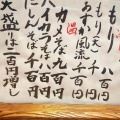 もり 八百円
もり(天) 千円
あすか風流 千円
カメそば 九百円
ハイカラそば 八百円
にしんそば 千百円
大盛りは二百円増し